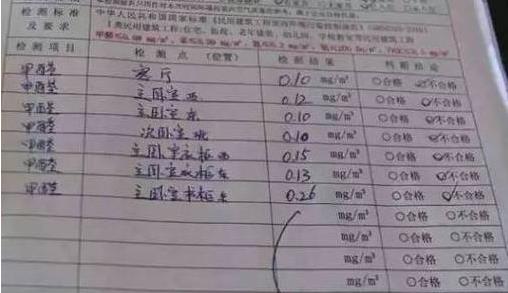 检测标准
及要求
中华人民共和国国家标准《民用建筑工程室内环境
I类民用建筑工程:住宅、医院、老年建筑、幼儿园、学校教室等民用建筑工程
检测项目 检测点(位置) 检测结果 判断结论
甲醛 客厅 0.10 mg/m³ ○合格 ☑不合格
甲醛 主卧室西 0.12 mg/m³ ○合格 ☑不合格
甲醛 主卧室东 0.10 mg/m³ ○合格 ☑不合格
甲醛 次卧室北 0.10 mg/m³ ○合格 ☑不合格
甲醛 主卧室衣柜西 0.15 mg/m³ ○合格 ☑不合格
甲醛 主卧室衣柜东 0.13 mg/m³ ○合格 ☑不合格
甲醛 主卧室书柜东 0.26 mg/m³ ○合格 ☑不合格
mg/m³ ○合格 ○不合格
mg/m³ ○合格 ○不合格
mg/m³ ○合格 ○不合格
mg/m³ ○合格 ○不合格